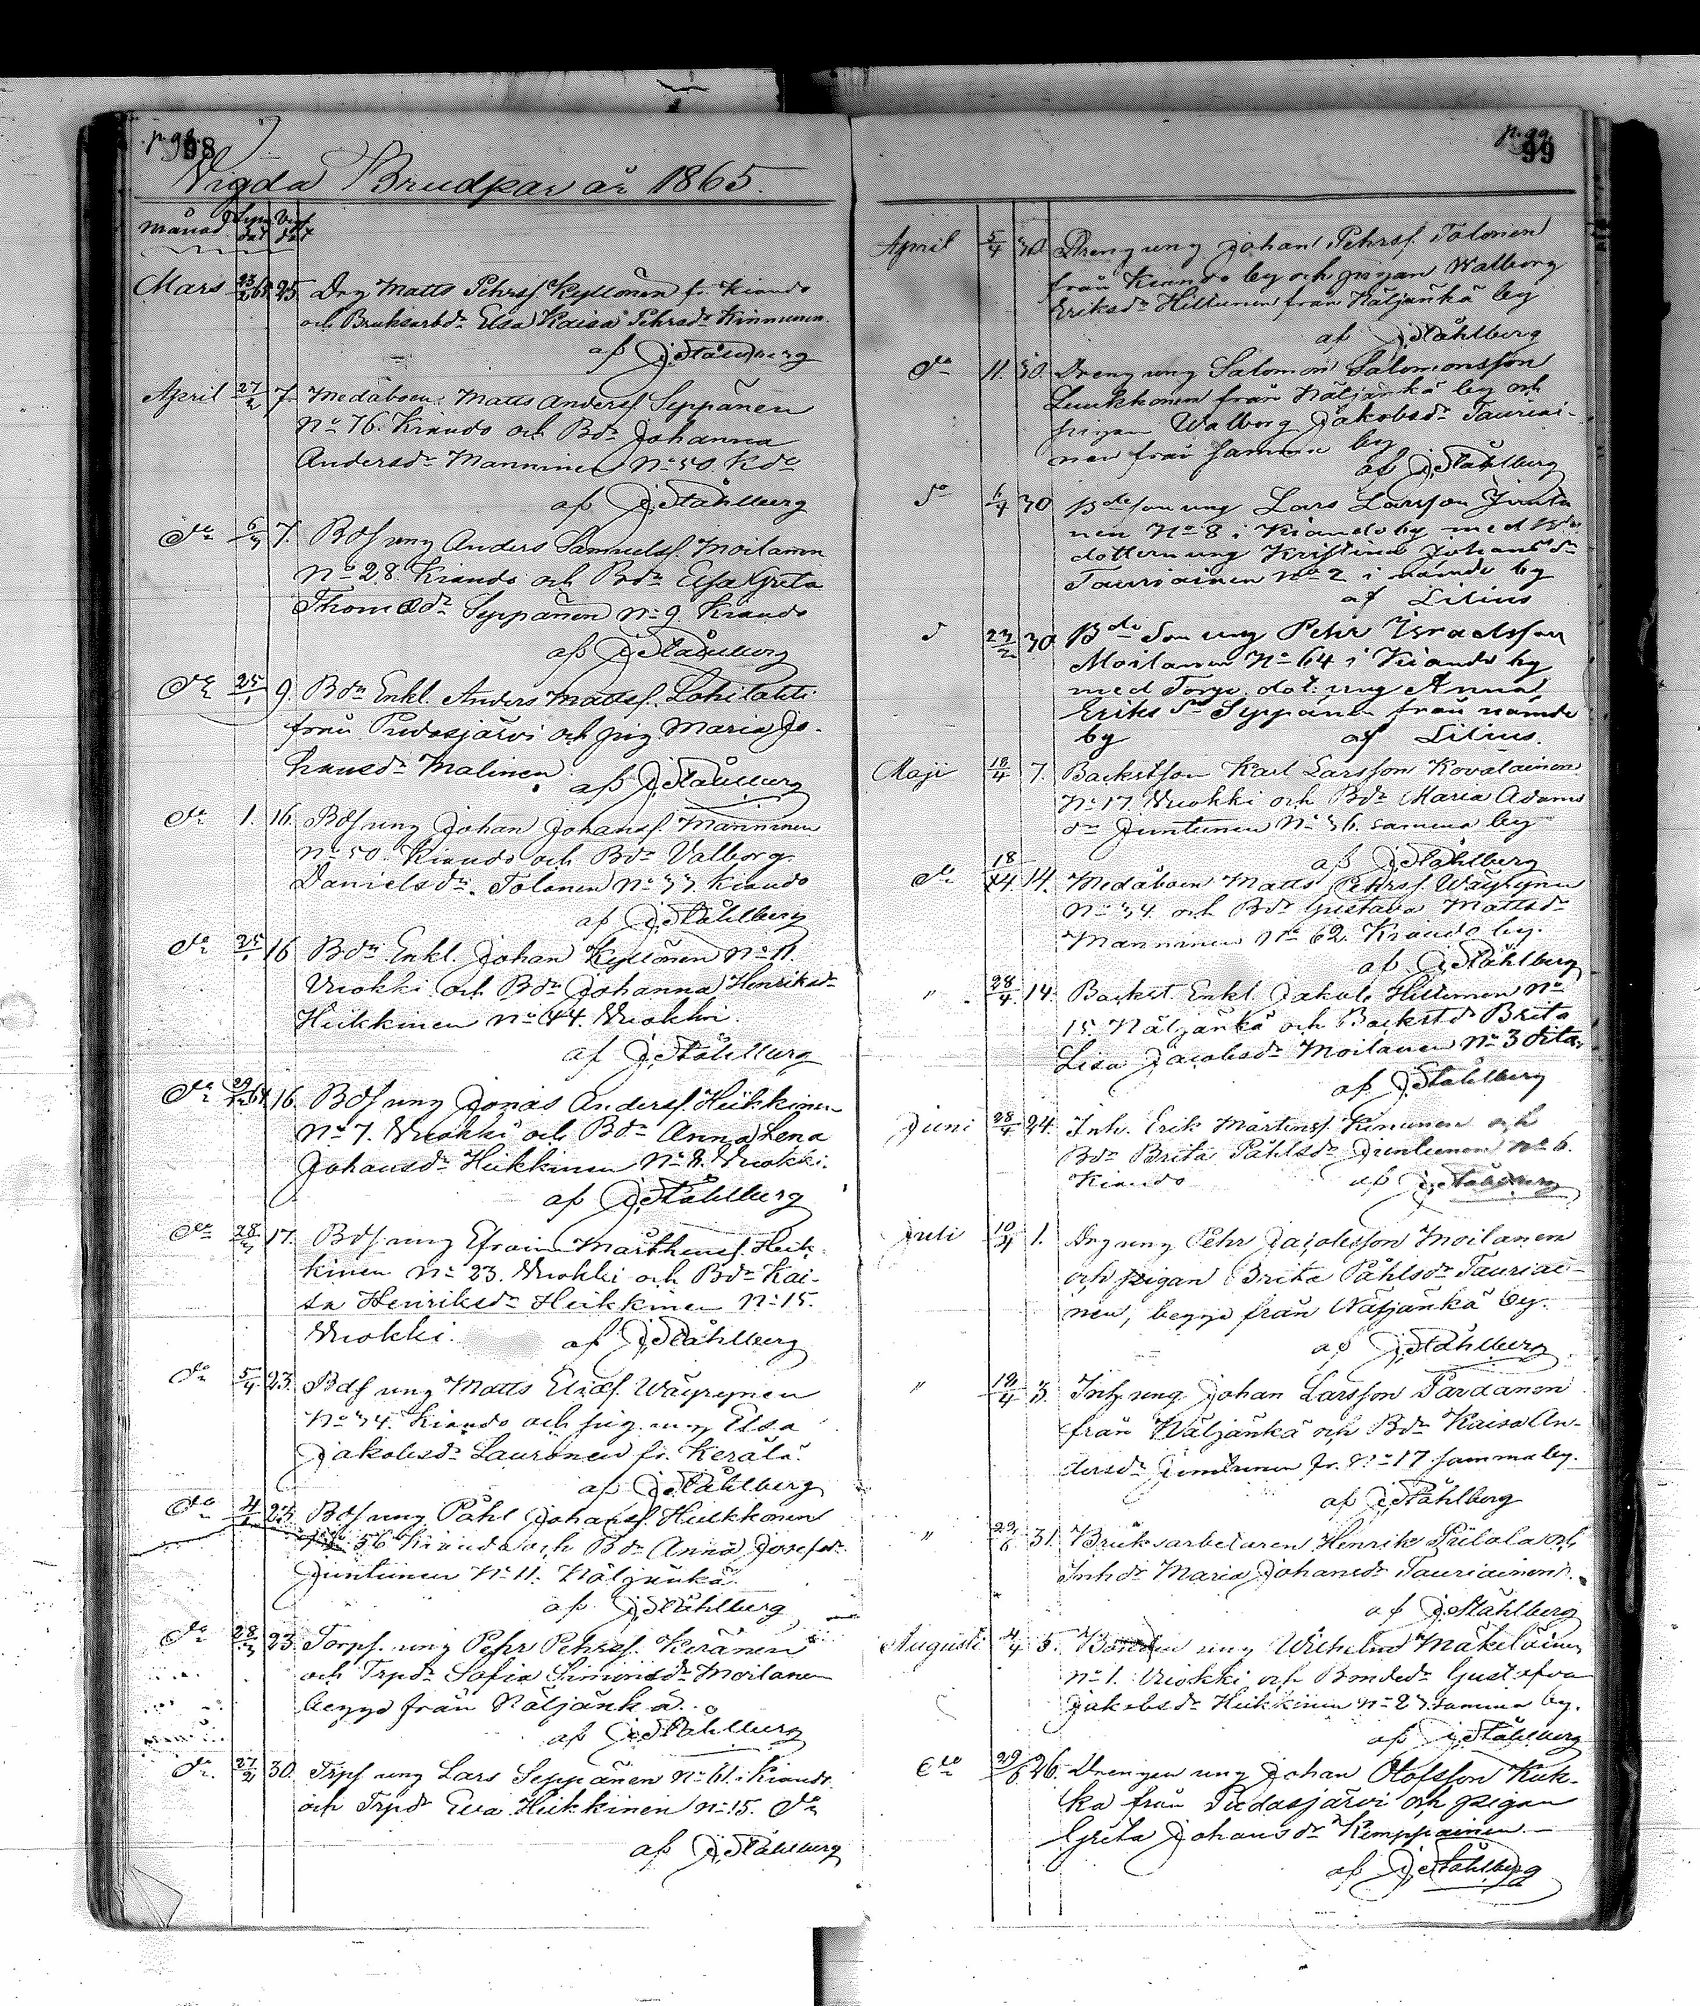 p. 98.
98
Vigda Brudpar år 1865.
Månad
Mars 65 25. Drg Matts Pehrsf. Kyllönen fr. Kiando
och Bruksarbdr. Elsa Kaisa Pehrsdr Kinnunen.
af J. Ståhlberg
April 27/2 7. Matts Andersf. Seppänen
No 76. Kiando och Bdr Johanna
Andersdr Manninen No 50. Kdo
af J. Ståhlberg
do 6/3 7. Bdf ung Anders Samuelsf. Moilanen
No 28. Kiando och Bdr Elsa Greta
Thomædr Seppänen No 9 Kiando
af J. Ståhlberg
do 25/1 9. Bdn Enkl. Anders Mattsf. Lohilahti
från Pudasjärvi och pig Maria Jo-
hansdr Malinen.
af J. Ståhlberg
do 1. 16. Bdf ung Johan Johansf. Manninen
No 50. Kiando och Bdr Valborg
Danielsdr. Tolonen No 33 Kiando
af J. Ståhlberg
do 25/1 16 Bdn Enkl. Johan Kyllönen No 11.
Vuokki och Bdr Johanna Henriksdr
Heikkinen No 44. Vuokki.
af J. Ståhlberg
do 16. Bdf ung Jonas Andersf. Heikkinen
No 7. Vuokki och Bdr Anna Lena
Johansdr Heikkinen No 8. Vuokki.
af J. Ståhlberg
do 28/3 17. Bdf ung Efraim Mårthensf. Heik-
kinen No 23. Vuokki och Bdr Kai-
sa Henriksdr Heikkinen No 15.
Vuokki. af J. Ståhlberg
do 5/4 23. Bdf ung Matts Eliæf. Wäyrynen
No 34. Kiando och pig. ung Elsa
Jakobsdr Lauronen fr. Kerälä.
af J. Ståhlberg
do 23. Bdf ung Påhl Johansf. Heikkonen
56 Kiando och Bdr Anna Josefsdr.
Juntunen No 11. Näljänkä.
af J. Ståhlberg
do 28/3 23. Torpf. ung Pehr Pehrsf. Keränen
och Trpdr Sofia Simonsdr Moilanen
begge från Näljänkä.
af J. Ståhlberg
do 27/2 30. Trpf ung Lars Seppänen No 61. i Kiando
och Trpdr Eva Heikkinen No 15. do
af J. Ståhlberg
p. 99.
99
April 5/4 30. Dreng ung Johan Pehrsf. Tolonen
från Kiando by och pigan Walborg
Eriksdr Hiltunen från Näljänkä by
af J. Ståhlberg
do 11. 30. Dreng ung Salomon Salomonsson
från Näljänkä by och
pigan Walborg Jakobsdr Tauriai-
nen från samma by
af J. Ståhlberg
do 6/4 30 Bdeson ung Lars Larsson Junta
nen No 8 i Kiando by med Bde
dottern ung Kristina Johansdr
Tauriainen No 2 i nämde by
af Lilius
d 23/2 30 Bde Son ung Pehr Israelsson
Moilanen No 64 i Kiando by
med Torp. dot: ung Anna
Eriks dr Seppänen från nämde
by af Lilius.
Maji 18/4 7. Backstfson Karl Larsson Kovalainen
No 17. Vuokki och Bdr Maria Adams
dr Juntunen No 36. samma by
af J. Ståhlberg
do 18/4 14. Medåboen Matts Pehrsf. Wäyrynen
No 34. och Bdr Gustava Mattsdr
Manninen No 62. Kiando by.
af J. Ståhlberg
" 28/4 14. Backst. Enkl. Jakob Hiltunen No
15. Näljänkä och Backstdr Brita
Lisa Jacobsdr Moilanen No 3 dito,
af J. Ståhlberg
Juni 28/4 24. Inh. Erik Mårtensf. Kinunen och
Bdr Brita Påhlsdr Juntunen No 6.
Kiando af J. Ståhlberg
Juli 10/4 1. Drg ung Pehr Jacobsson Moilanen
och pigan Brita Påhlsdr Tauriai-
nen, begge från Näljänkä by.
af J. Ståhlberg
" 18/4 3. Inh. ung Johan Larsson Pardanen
från Näljänkä och Bdr Kaisa An-
dersdr Juntunen fr. No 17 samma by.
af J. Ståhlberg
" 31. Bruksarbetaren Henrik Pietola och
Inhdr Maria Johansdr Tauriainen.
af J. Ståhlberg
Augusti 4/4 5. ung Wilhelm Mäkeläinen
No 1. Vuokki och Bondedr Gustafva
Jakobsdr Heikkinen No 23 samma by.
af J. Ståhlberg
do 26. Drengen ung Johan Olofsson Kuk-
ka från Pudasjärvi och pigan
Greta Johansdr Kemppainen.
af J. Ståhlberg